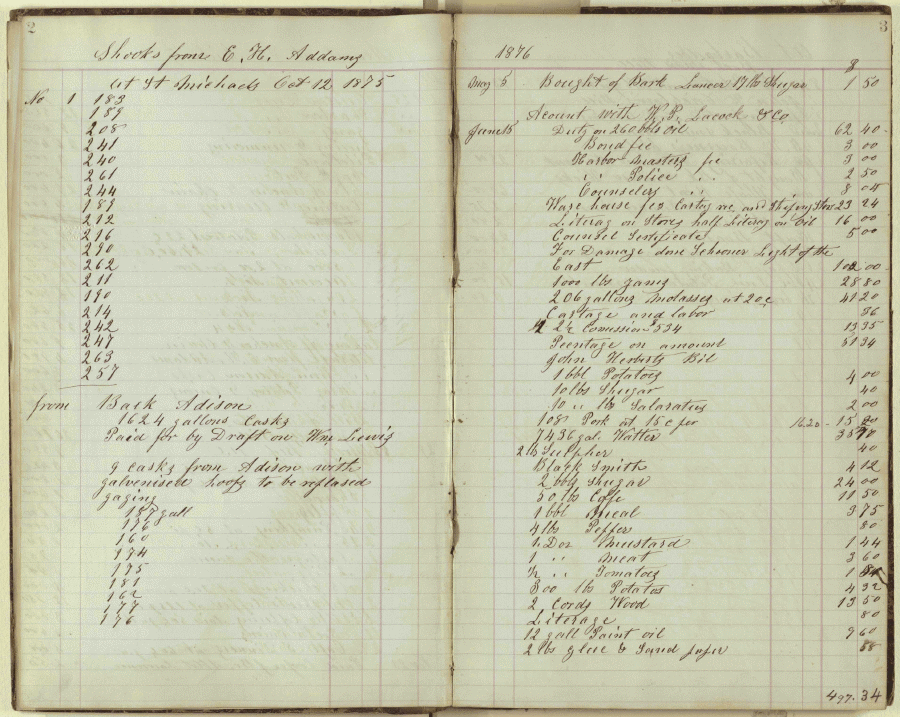 2
Shooks from E. H. Addams
at St Michaels Oct 12 1875
No 1 183
189
208
241
240
261
244
189
212
216
290
262
211
190
214
242
247
263
257
from Bark Adison
1624 gallons Casks
Paid for by Draft on Wm Lewis
9 casks from Adison with
galvenised hoops to be replased
gaging
157 gall
136
160
174
175
181
162
177
176
3
1876 $
5 Bought of Bark Lancer 17 lbs Shugar 1 50
Acount with W. P. Lacock & Co
June 15 Duty on 260 bbls Oil 62 40
Bond fee 3 00
Harbor Masters fee 3 00
" Police " 2 50
Counselers " 8 04
Ware house fes Cartag 23 24
Literag on Stores half Literag on Oil 16 00
Counsel Sertificate 5 00
For Damage done Schooner Light of the
East 102 00
1000 lbs yams 28 80
206 gallons Molasses at 20 c 41 20
Cartage and labor 36
2 1/2 Comission 534 13 35
Pecentage on amount 51 34
John Herberts Bil
1 bbl Potatoes 4 00
10 lbs Shugar 40
10 " lbs Salaratus 2 00
108 Pork at 15 c per 16.20 - 15 20
7436 gal. Watter 35 70
2 lb Sulpher 40
Black Smith 4 12
2 bbls Shugar 24 00
50 lbs Coffe 11 50
1 bbl Meal 3 75
4 lbs Peffer 80
1 Doz Mustard 1 44
1 " Meat 3 60
1/2 " Tomatoes
300 lbs Potatos 4 32
2 Cords Wood 13 50
Literage 80
12 gall Paint oil 9 60
2 lbs glue & Sand paper 58
497. 34